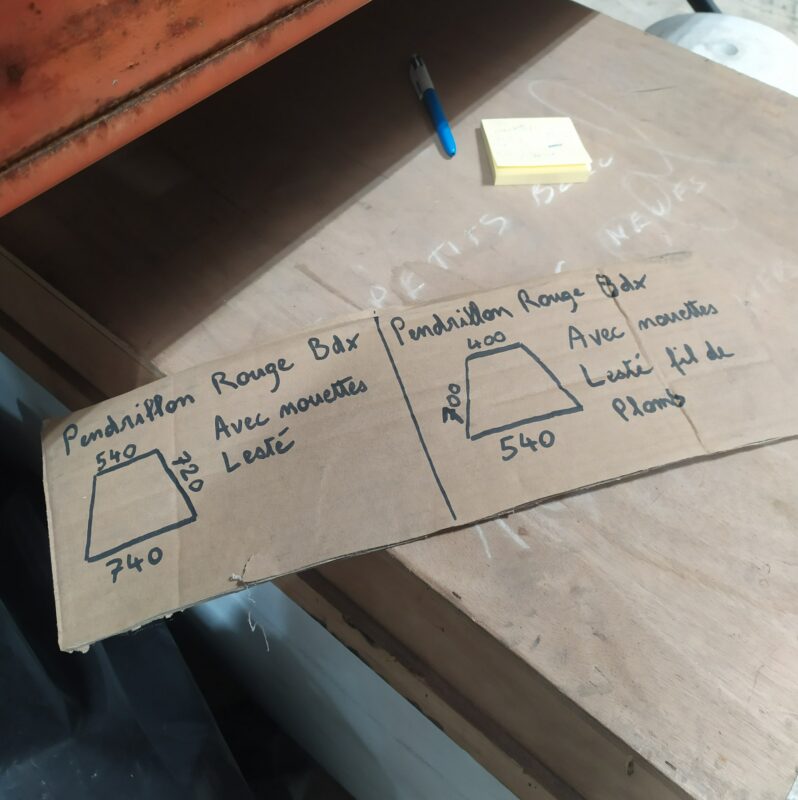 Pendrillon Rouge Bdx
Avec mouettes
Lesté
540
720
740
Pendrillon Rouge Bdx
Avec mouettes
Lesté fil de
Plomb
400
700
540
PETITS
NEUFS